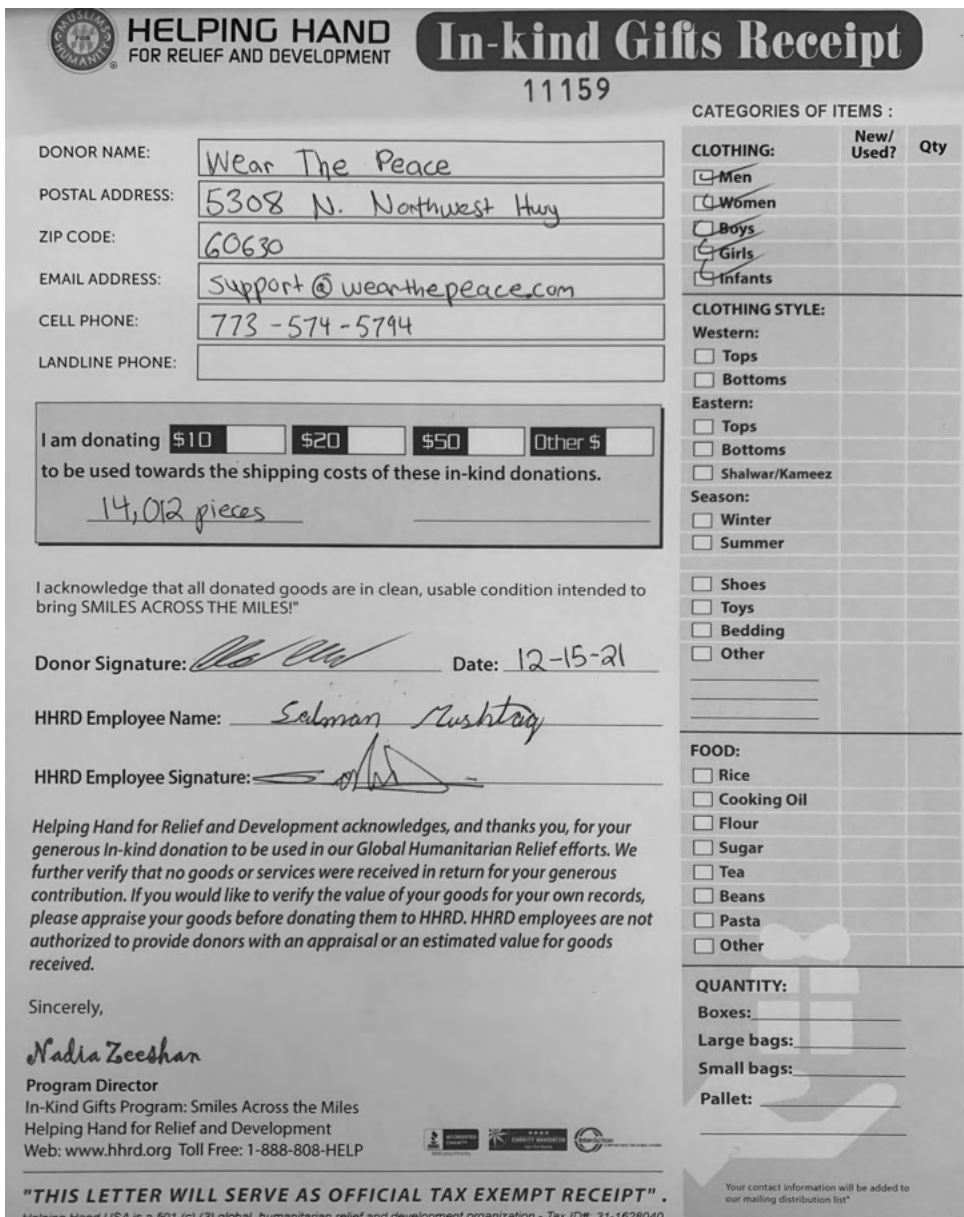 MUSLIMS FOR HUMANITY
HELPING HAND
FOR RELIEF AND DEVELOPMENT
In-kind Gifts Receipt
11159
DONOR NAME: Wear The Peace
POSTAL ADDRESS: 5308 N. Northwest Hwy
ZIP CODE: 60630
EMAIL ADDRESS: support@wearthepeace.com
CELL PHONE: 773-574-5794
LANDLINE PHONE:
I am donating $10 $20 $50 Other $
to be used towards the shipping costs of these in-kind donations.
14,012 pieces
I acknowledge that all donated goods are in clean, usable condition intended to
bring SMILES ACROSS THE MILES!"
Donor Signature: Date: 12-15-21
HHRD Employee Name: Salman Mushtaq
HHRD Employee Signature:
Helping Hand for Relief and Development acknowledges, and thanks you, for your
generous In-kind donation to be used in our Global Humanitarian Relief efforts. We
further verify that no goods or services were received in return for your generous
contribution. If you would like to verify the value of your goods for your own records,
please appraise your goods before donating them to HHRD. HHRD employees are not
authorized to provide donors with an appraisal or an estimated value for goods
received.
Sincerely,
Nadia Zeeshan
Program Director
In-Kind Gifts Program: Smiles Across the Miles
Helping Hand for Relief and Development
Web: www.hhrd.org Toll Free: 1-888-808-HELP
ACCREDITED CHARITY
CHARITY NAVIGATOR
InterAction
"THIS LETTER WILL SERVE AS OFFICIAL TAX EXEMPT RECEIPT" .
Helping Hand USA is a 501 (c) (3) global, humanitarian relief and development organization - Tax ID#: 31-1628040
CATEGORIES OF ITEMS :
CLOTHING: New/ Used? Qty
Men
Women
Boys
Girls
Infants
CLOTHING STYLE:
Western:
Tops
Bottoms
Eastern:
Tops
Bottoms
Shalwar/Kameez
Season:
Winter
Summer
Shoes
Toys
Bedding
Other
FOOD:
Rice
Cooking Oil
Flour
Sugar
Tea
Beans
Pasta
Other
QUANTITY:
Boxes:
Large bags:
Small bags:
Pallet:
Your contact information will be added to
our mailing distribution list"